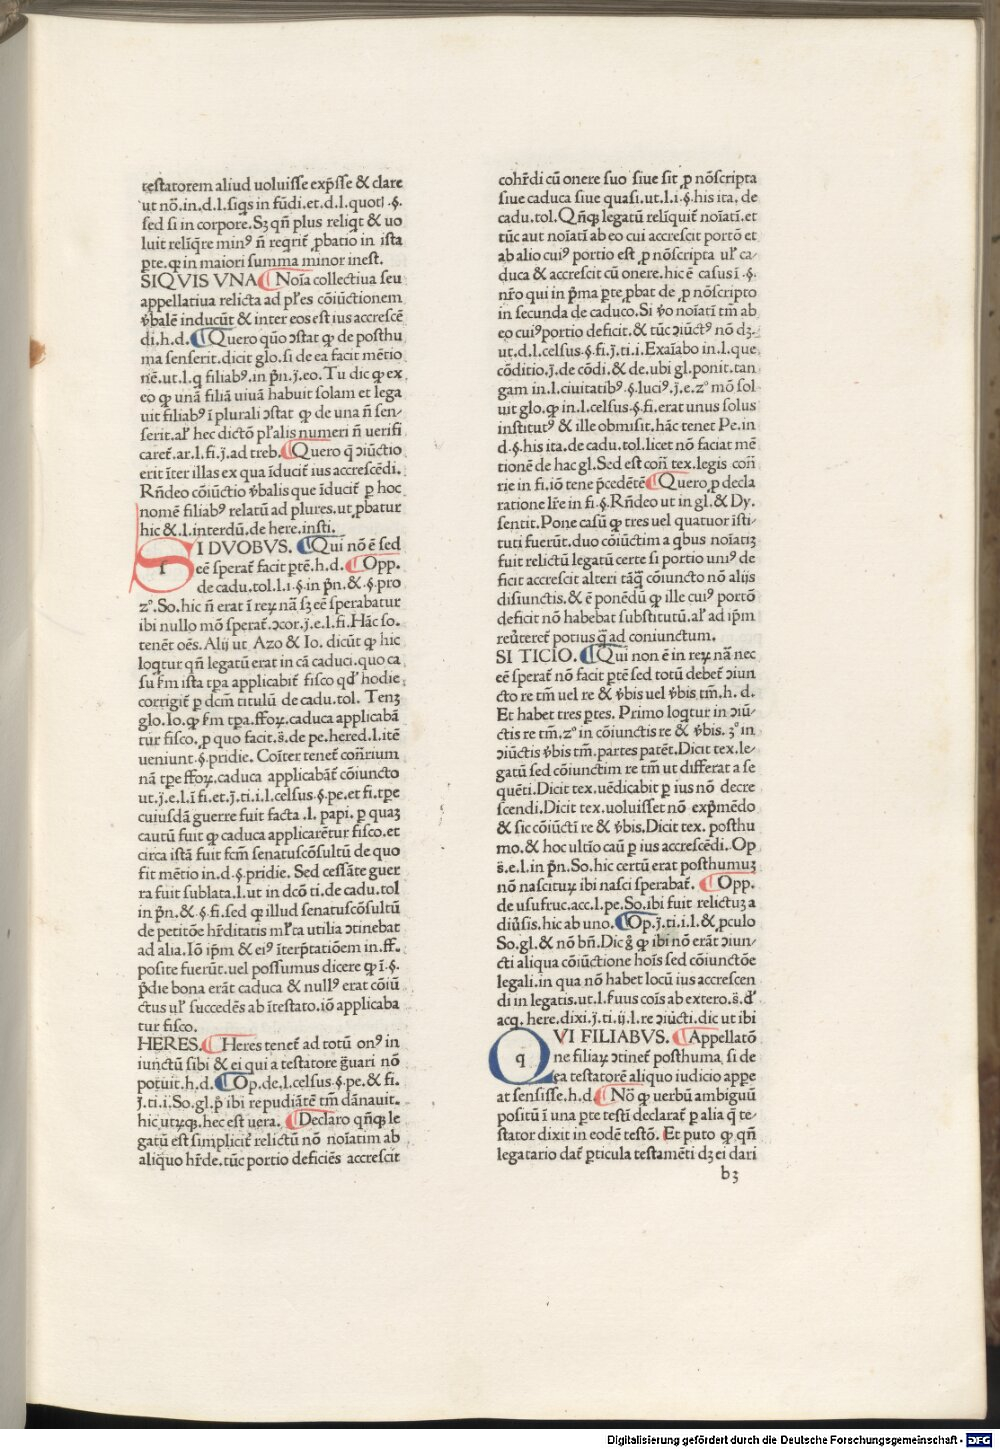 testatorem aliud uoluisse exp̄sse & clare
ut nō.in.d.l.siqs in fūdi.et.d.l.quotl .§.
sed si in corpore.Sꝫ qn̄ plus reliqt & uo
luit relīq̄re minꝰ n̄ reqrit̄ ꝓbatio in ista
ꝑte.ꝙ in maiori summa minor inest.
SIQVIS VNA ¶ Noīa collectiua seu
appellatiua relicta ad pl̄es cōiūctionem
v̄balē inducūt & inter eos est ius accrescē
di.h.d. ¶ Quero quō ɔstat ꝙ de posthu
ma senserit.dicit glo.si de ea facit mētio
nē.ut.l.q filiabꝰ.in p̄n.j.eo.Tu dic ꝙ ex
eo ꝙ unā filiā uiuā habuit solam et lega
uit filiabꝰ ī plurali ɔstat ꝙ de una n̄ sen/
serit.al̄ hec dictō pl̄alis numeri n̄ uerifi
caret̄.ar.l.fi.j.ad treb. ¶ Quero q̄ ɔiūctio
erit īter illas ex qua īducit̄ ius accrescēdi.
Rn̄deo cōiūctio v̄balis que īducit̄ ꝑ hoc
nomē filiabꝰ relatū ad plures.ut ꝓbatur
hic &.l.interdū.de here.insti.
SI DVOBVS. ¶ Qui nō ē sed
eē sperat̄ facit ꝑtē.h.d. ¶ Opp.
de cadu.tol.l.i.§.in p̄n.&.§.pro
zº.So.hic n̄ erat ī reꝝ nā sꝫ eē sperabatur
ibi nullo mō sperat̄.ɔcor.j.e.l.fi.Hāc so.
tenēt oēs.Alij ut Azo & Io. dicūt ꝙ hic
loqtur qn̄ legatū erat in cā caduci.quo ca
su s̄m ista tꝑa applicabit̄ fisco qd̄ hodie
corrigit̄ ꝑ dcm̄ titulū de cadu.tol. Tenꝫ
glo.Io.ꝙ s̄m tꝑa.ffoꝝ.caduca applicabā
tur fisco.ꝓ quo facit.s̄.de pe.hered.l.itē
ueniunt.§.pridie. Coīter tenet̄ con̄rium
nā tꝑe ffoꝝ.caduca applicabāt̄ cōiuncto
ut.j.e.l.ī fi.et.j.ti.i.l.celsus.§.pe.et fi.tꝑe
cuiusdā guerre fuit facta .l. papi. ꝑ quaꝫ
cautū fuit ꝙ caduca applicarētur fisco.et
circa istā fuit fcm̄ senatuscōsultū de quo
fit mētio in.d.§.pridie. Sed cessāte guer
ra fuit sublata.l.ut in dcō ti.de cadu.tol
in p̄n.&.§.fi.sed ꝙ illud senatuscōsultū
de petitōe hr̄ditatis ml̄ta utilia ɔtinebat
ad alia.Iō ip̄m & eiꝰ īterp̄tatiōem in.ff.
posite fuerūt.uel possumus dicere ꝙ ī.§.
p̄die bona erāt caduca & nullꝰ erat cōiū
ctus ul̄ succedēs ab ītestato.iō applicaba
tur fisco.
HERES. ¶ Heres tenet̄ ad totū onꝰ in
iunctū sibi & ei qui a testatore ḡuari nō
potuit.h.d. ¶ Op.de.l.celsus.§.pe.& fi.
j.ti.i.So.gl.p̄ ibi repudiātē tm̄ dānauit.
hic utꝝqꝫ.hec est uera. ¶ Declaro qn̄qꝫ le
gatū est simplicit̄ relictū nō noīatim ab
aliquo hr̄de.tūc portio deficiēs accrescit
cohr̄di cū onere suo siue sit ꝓ nōscripta
siue caduca siue quasi.ut.l.i.§.his ita, de
cadu.tol.Qn̄qꝫ legatū relīquit̄ noīatī.et
tūc aut noīatī ab eo cui accrescit portō et
ab alio cuiꝰ portio est ꝓ nōscripta ul̄ ca/
duca & accrescit cū onere.hic ē casus ī .§.
nr̄o qui in p̄ma ꝑte ꝓbat de ꝓ nōscripto
in secunda de caduco.Si v̄o noīatī tm̄ ab
eo cuiꝰ portio deficit.& tūc ɔiūctꝰ nō dꝫ.
ut.d.l.celsus.§.fi.j.ti.i.Exaīabo in.l.que
cōditio.j.de cōdi.& de.ubi gl.ponit.tan
gam in.l.ciuitatibꝰ.§.luciꝰ.j.e.zº mō sol
uit glo.ꝙ in.l.celsus.§.fi.erat unus solus
institutꝰ & ille obmisit.hāc tenet Pe.in
d.§.his ita.de cadu.tol.licet nō faciat mē
tionē de hac gl.Sed est con̄ tex.legis con̄
rie in fi.iō tene p̄cedētē ¶ Quero ꝓ decla
ratione lr̄e in fi.§.Rn̄deo ut in gl.& Dy.
sentit.Pone casū ꝙ tres uel quatuor īsti/
tuti fuerūt.duo cōiūctim a qbus noīatiꝫ
fuit relictū legatū certe si portio uniꝰ de
ficit accrescit alteri tāq̄ cōiuncto nō alijs
disiunctis.& ē ponēdū ꝙ ille cuiꝰ portō
deficit nō habebat substitutū.al̄ ad ip̄m
reūteret̄ potius q̄ ad coniunctum.
SI TICIO. ¶ Qui non ē in reꝝ nā nec
eē sperat̄ nō facit ꝑtē sed totū debet̄ ɔiun
cto re tm̄ uel re & v̄bis uel v̄bis tm̄.h. d.
Et habet tres ꝑtes. Primo loqtur in ɔiū/
ctis re tm̄.zº in cōiunctis re & v̄bis. ꝫº in
ɔiūctis v̄bis tm̄.partes patēt.Dicit tex.le/
gatū sed cōiunctim re tm̄ ut differat a se
quēti.Dicit tex.uēdicabit ꝑ ius nō decre
scendi.Dicit tex.uoluisset nō exp̄mēdo
& sic cōiūctī re & v̄bis.Dicit tex. posthu
mo.& hoc ultīo caū ꝑ ius accrescēdi. Op
s̄.e.l.in p̄n.So.hic certū erat posthumuꝫ
nō nascituꝝ ibi nasci sperabat̄. ¶ Opp.
de usufruc.acc.l.pe.So.ibi fuit relictuꝫ a
diūsis.hic ab uno. ¶ Op.j.ti.i.l.& ꝓculo
So.gl.& nō bn̄.Dic ḡ ꝙ ibi nō erāt ɔiun/
cti aliqua cōiūctione hoīs sed cōiunctōe
legali.in qua nō habet locū ius accrescen
di in legatis.ut.l.suus coīs ab extero.s̄.d̄
acq. here.dixi.j.ti.ij.l.re ɔiūcti.dic ut ibi
QVI FILIABVS. ¶ Appellatō
ne filiaꝝ ɔtinet̄ posthuma si de
ea testatorē aliquo iudicio appe
at sensisse.h.d. ¶ Nō ꝙ uerbū ambiguū
positū ī una ꝑte testī declarat̄ ꝑ alia q̄ te/
stator dixit in eodē testō. Et puto ꝙ qn̄
legatario dat̄ ꝑticula testamēti dꝫ ei dari
b3
Digitalisierung gefördert durch die Deutsche Forschungsgemeinschaft - DFG